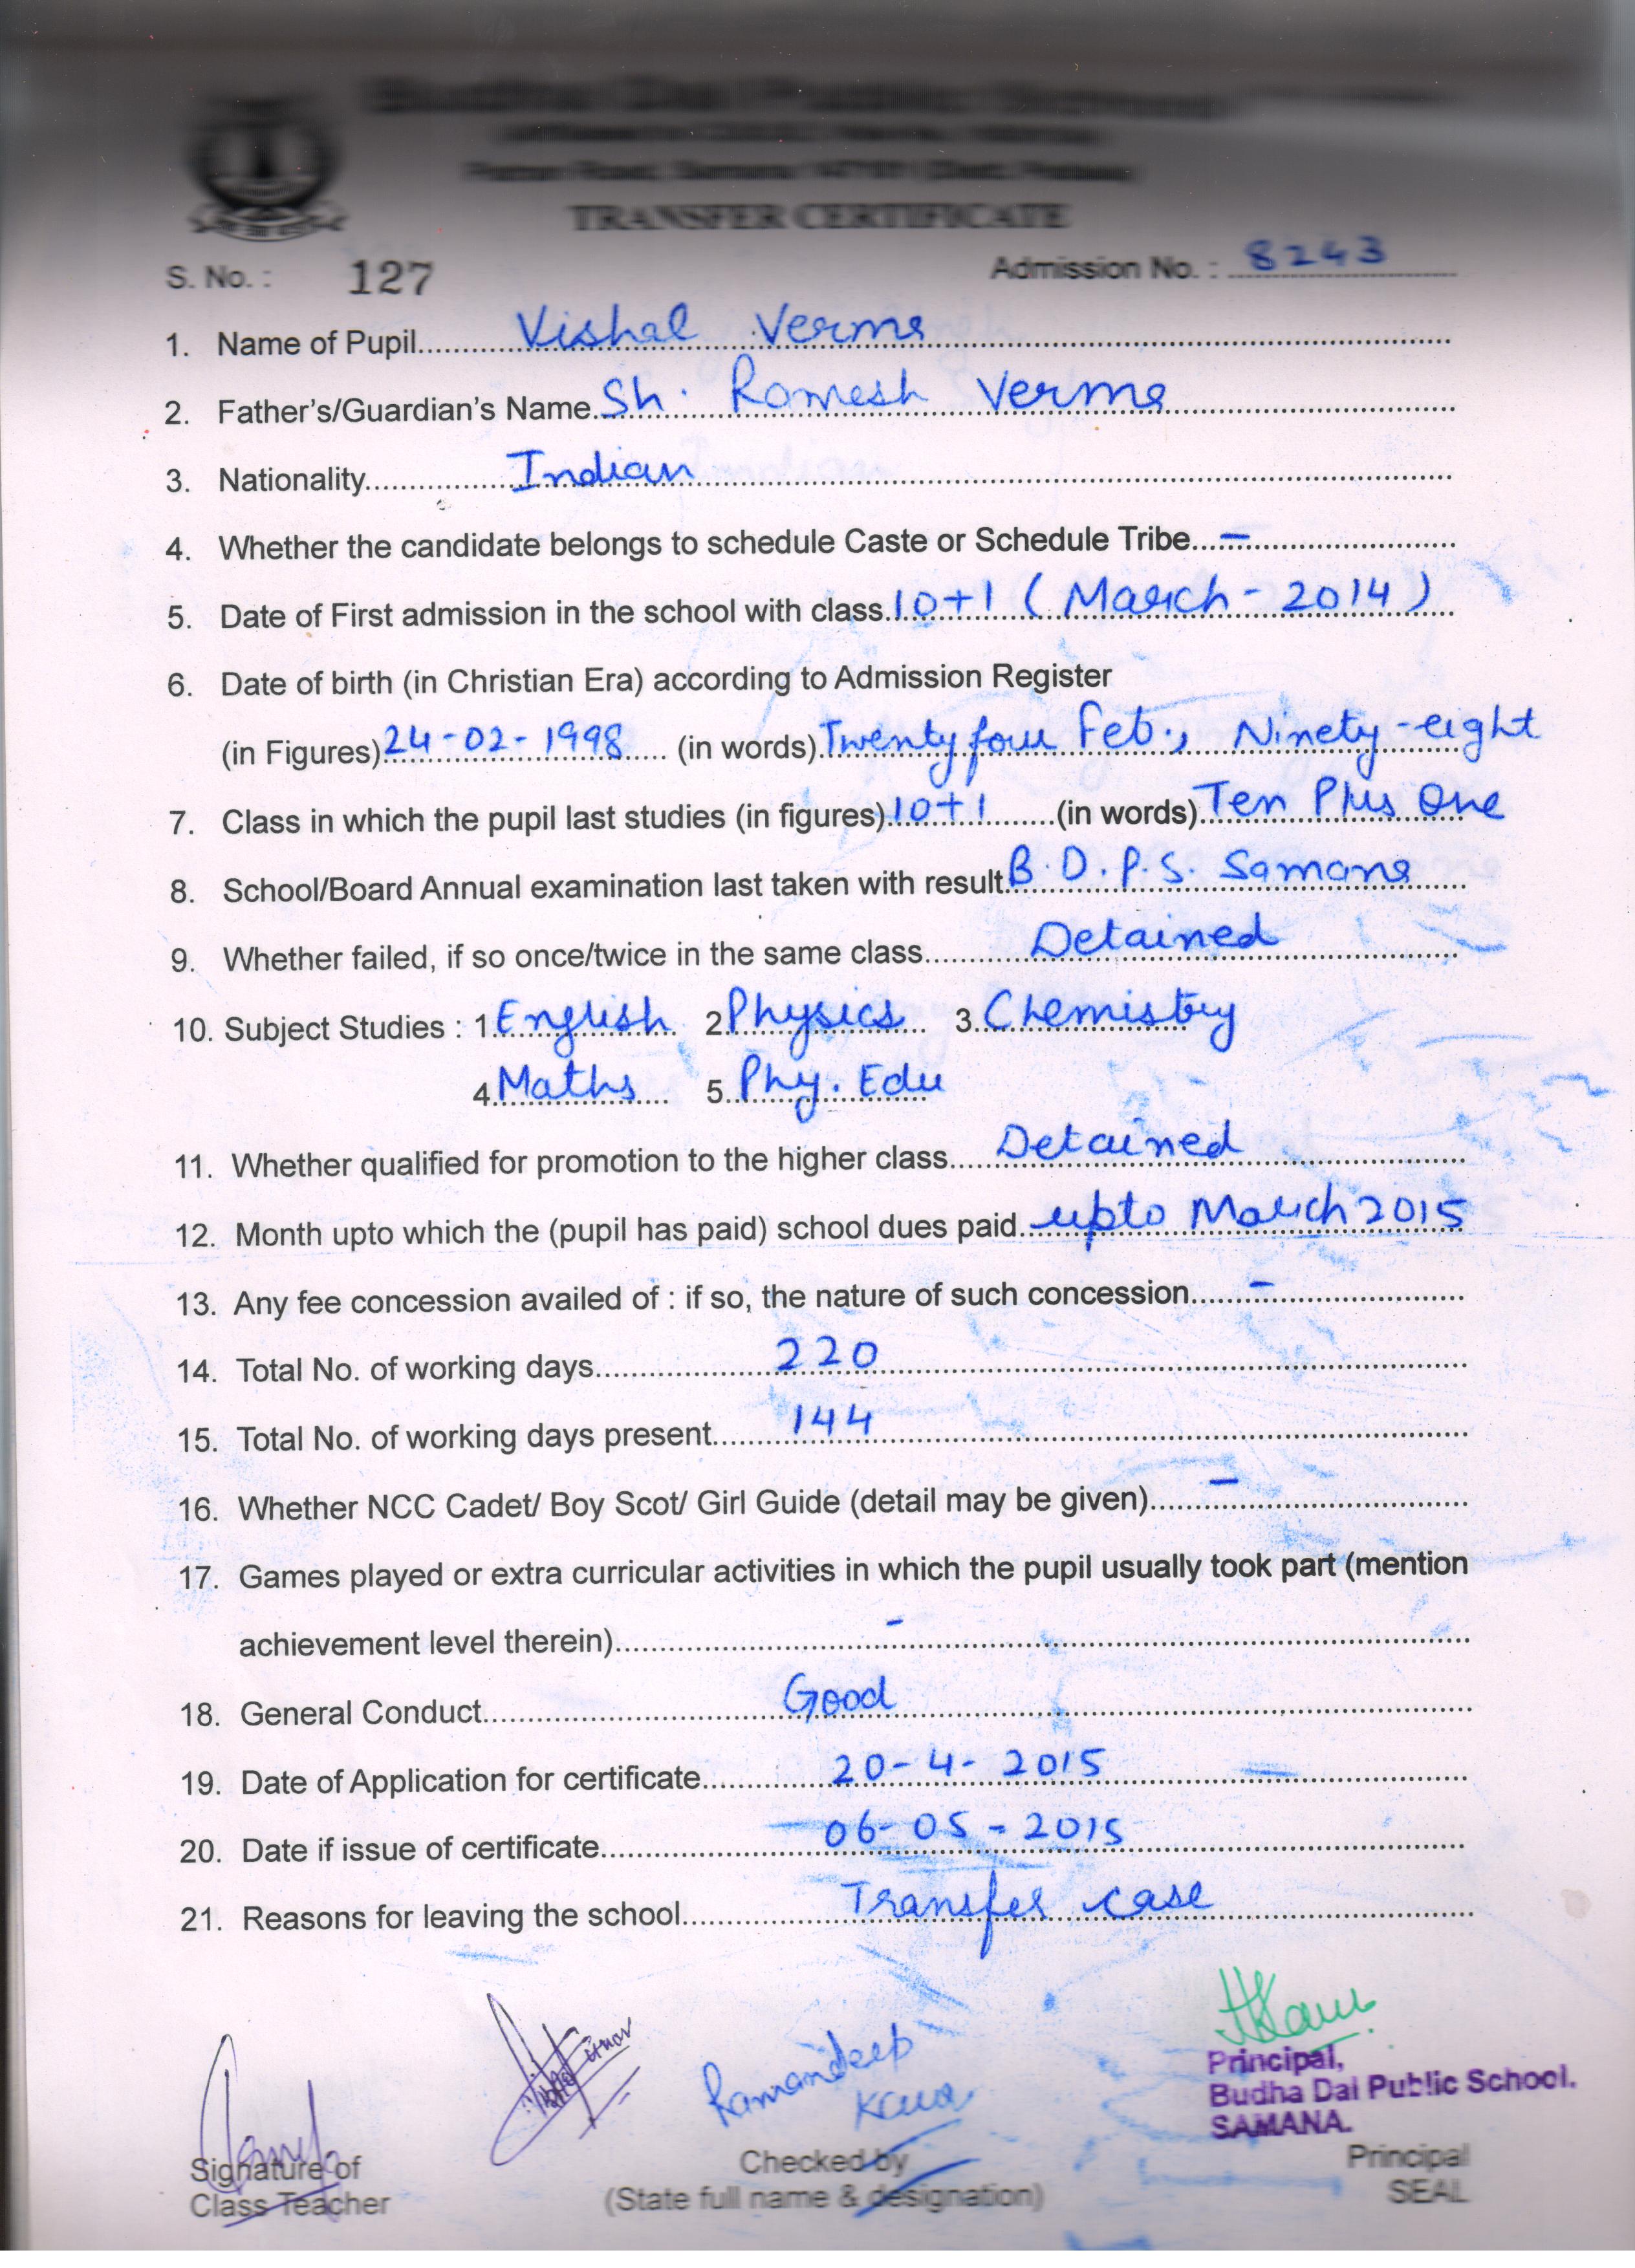 TRANSFER CERTIFICATE
S. No. : 127 Admission No. : 8243
1. Name of Pupil Vishal Verma
2. Father's/Guardian's Name Sh. Ramesh Verma
3. Nationality Indian
4. Whether the candidate belongs to schedule Caste or Schedule Tribe –
5. Date of First admission in the school with class 10+1 ( March - 2014 )
6. Date of birth (in Christian Era) according to Admission Register
(in Figures) 24-02-1998 (in words) Twenty four Feb., Ninety-eight
7. Class in which the pupil last studies (in figures) 10+1 (in words) Ten Plus One
8. School/Board Annual examination last taken with result B.D.P.S. Samana
9. Whether failed, if so once/twice in the same class Detained
10. Subject Studies : 1. English 2. Physics 3. Chemistry
4. Maths 5. Phy. Edu
11. Whether qualified for promotion to the higher class Detained
12. Month upto which the (pupil has paid) school dues paid upto March 2015
13. Any fee concession availed of : if so, the nature of such concession –
14. Total No. of working days 220
15. Total No. of working days present 144
16. Whether NCC Cadet/ Boy Scot/ Girl Guide (detail may be given) –
17. Games played or extra curricular activities in which the pupil usually took part (mention
achievement level therein) -
18. General Conduct Good
19. Date of Application for certificate 20-4-2015
20. Date if issue of certificate 06-05-2015
21. Reasons for leaving the school Transfer case
Ramandeep
Kaur
Principal,
Budha Dal Public School.
SAMANA.
Signature of Checked by Principal
Class Teacher (State full name & designation) SEAL